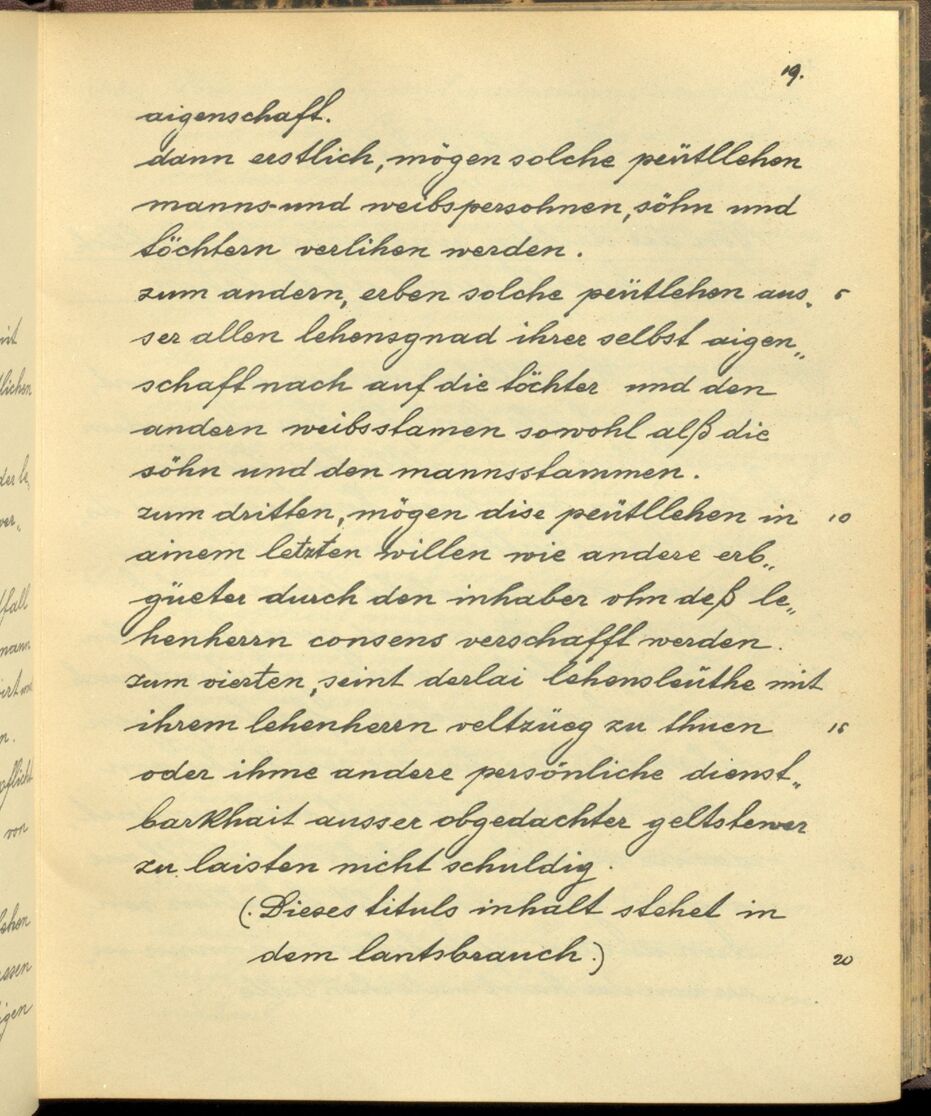 19.
aigenschaft.
dann erstlich, mögen solche peütllehen
manns-und weibspersohnen, söhn und
töchtern verlihen werden.
zum andern, erben solche peütlehen aus„ 5
ser allen lehensgnad ihrer selbst aigen„
schaft nach auf die töchter und den
andern weibsstamen sowohl alß die
söhn und den mannsstammen.
zum dritten, mögen dise peütllehen in 10
ainem letzten willen wie andere erb„
güeter durch den inhaber ohn deß le„
henherrn consens verschafft werden.
zum vierten, seint derlai lehensleüthe mit
ihrem lehenherrn veltzüeg zu thuen 15
oder ihme andere persönliche dienst„
barkhait ausser obgedachter geltstewer
zu laisten nicht schuldig.
(. Dieses tituls inhalt stehet in
dem lantsbrauch.) 20